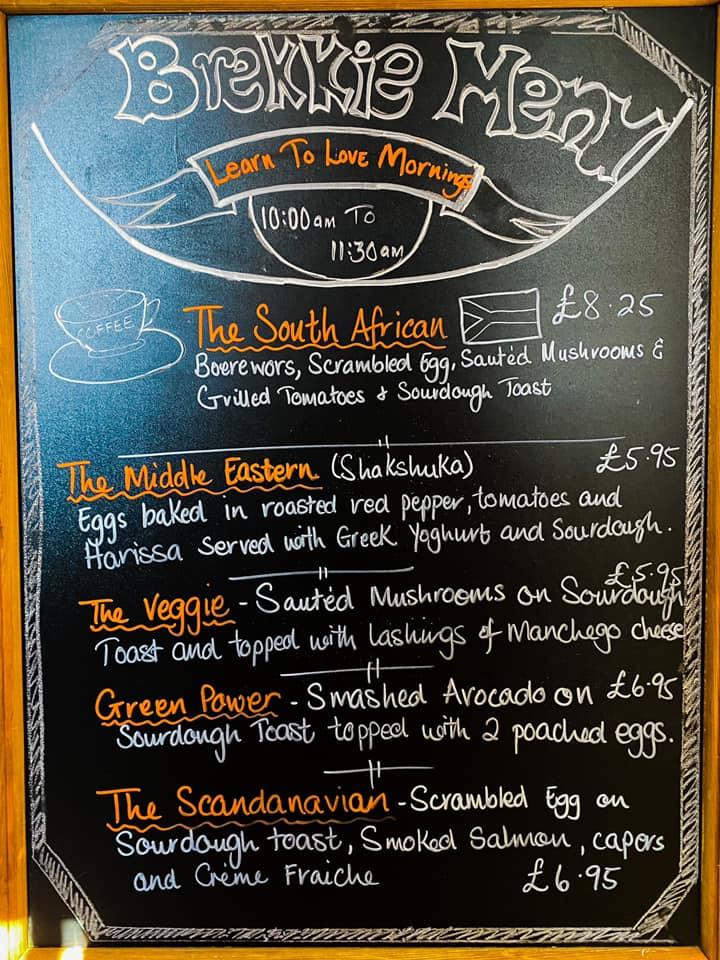 Brekkie Menu
Learn To Love Mornings
10:00am To
11:30am
COFFEE
The South African £8.25
Boerewors, Scrambled Egg, Sautéd Mushrooms &
Grilled Tomatoes & Sourdough Toast
The Middle Eastern (Shakshuka) £5.95
Eggs baked in roasted red pepper, tomatoes and
Harissa served with Greek Yoghurt and Sourdough.
£5.95
The Veggie - Sautéd Mushrooms on Sourdough
Toast and topped with lashings of Manchego cheese
Green Power - Smashed Avocado on £6.95
Sourdough Toast topped with 2 poached eggs.
The Scandanavian - Scrambled Egg on
Sourdough toast, Smoked Salmon, capers
and Crème Fraiche £6.95